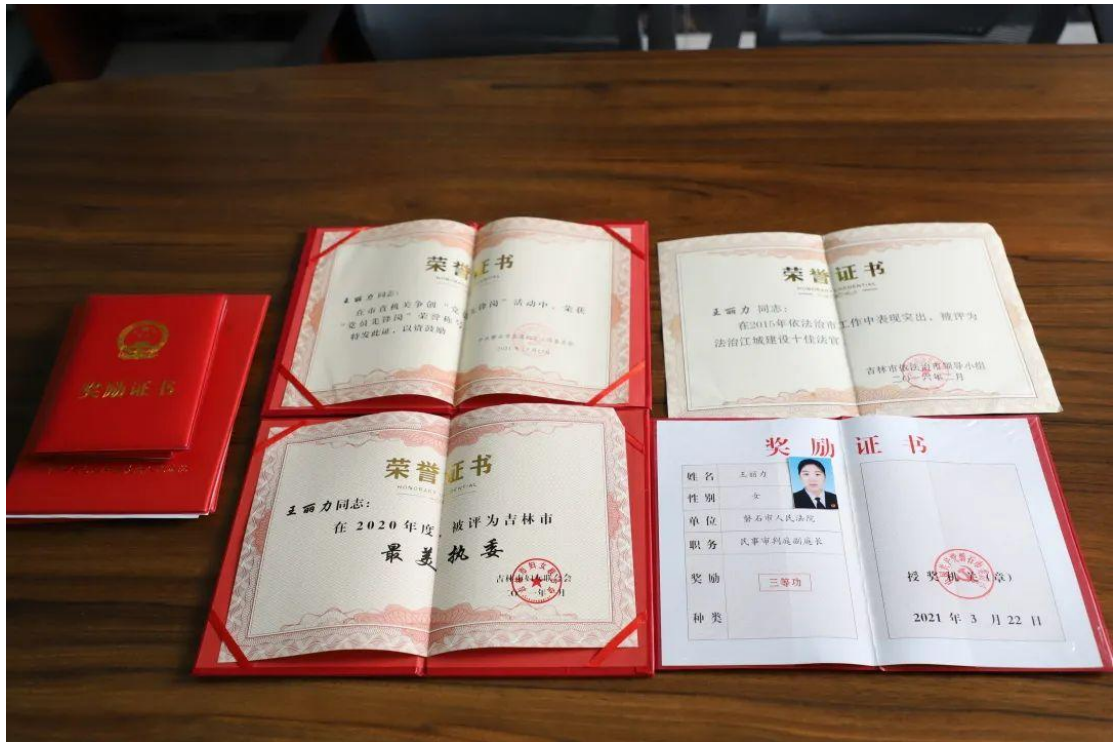 奖励证书
荣誉证书
王丽力同志:
在市直机关争创“党员先锋岗”活动中,荣获
“党员先锋岗”荣誉称号
特发此证,以资鼓励
荣誉证书
王丽力同志:
在2015年依法治市工作中表现突出,被评为
法治江城建设十佳法官
吉林市依法治市领导小组
二〇一六年二月
荣誉证书
王丽力同志:
在2020年度,被评为吉林市
最美执委
吉林市妇女联合会
奖励证书
姓名 王丽力
性别 女
单位 磐石市人民法院
职务 民事审判庭副庭长
奖励
种类
三等功
授奖机关(章)
2021年3月22日